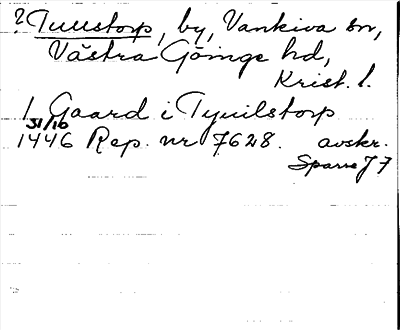 ? Tullstorp, by, Vankiva sn,
Västra Göinge hd,
Krist. l.
1 Gaard i Tyuilstorp
31/10
1446 Rep. nr 7628. avskr.
Sparre J 7